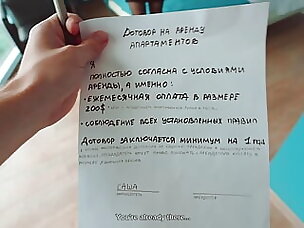 Договор на аренду
апартаментов
Я
полностью согласна с условиями
аренды, а именно:
• Ежемесячная оплата в размере
200$
• Соблюдение всех установленных правил
Договор заключается минимум на 1 год
САША
You're already there...